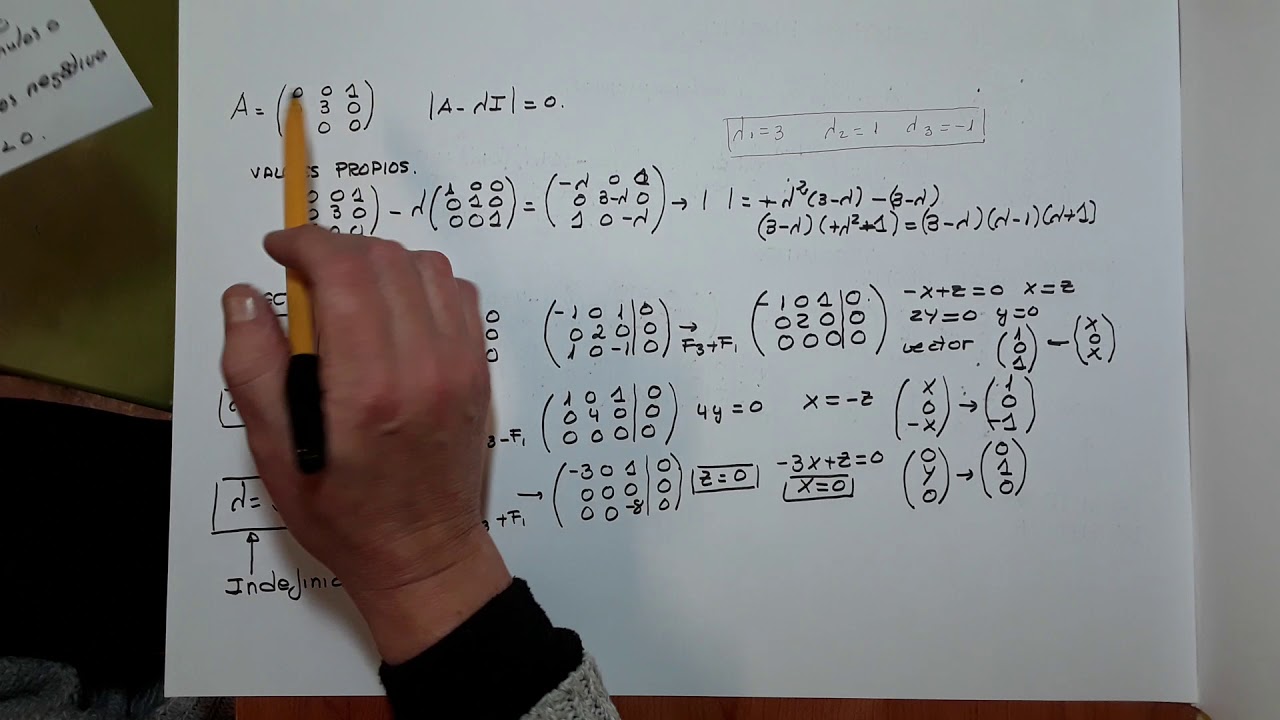 nulos o
os negativo
20.
A = ( 0 0 1
3 0
0 0 ) |A - λI| = 0.
λ1 = 3 λ2 = 1 λ3 = -1
PROPIOS.
0 0 1
0 3 0
0 0 ) - λ ( 1 0 0
0 1 0
0 0 1 ) = ( -λ 0 1
0 3-λ 0
1 0 -λ ) → | | = + λ²(3-λ) - (3-λ)
(3-λ)(+λ²+1) = (3-λ)(λ-1)(λ+1)
0
0
0
( -1 0 1 | 0
0 2 0 | 0
1 0 -1 | 0 ) → F3+F1 ( -1 0 1 | 0
0 2 0 | 0
0 0 0 | 0 ) -x+z=0 x=z
2y=0 y=0
vector ( 1
0
1 ) - ( x
0
x )
3-F1 ( 1 0 1 | 0
0 4 0 | 0
0 0 0 | 0 ) 4y=0 x=-z ( x
0
-x ) → ( 1
0
-1 )
λ=
3+F1 → ( -3 0 1 | 0
0 0 0 | 0
0 0 -8 | 0 ) z=0 -3x+z=0
x=0 ( 0
y
0 ) → ( 0
1
0 )